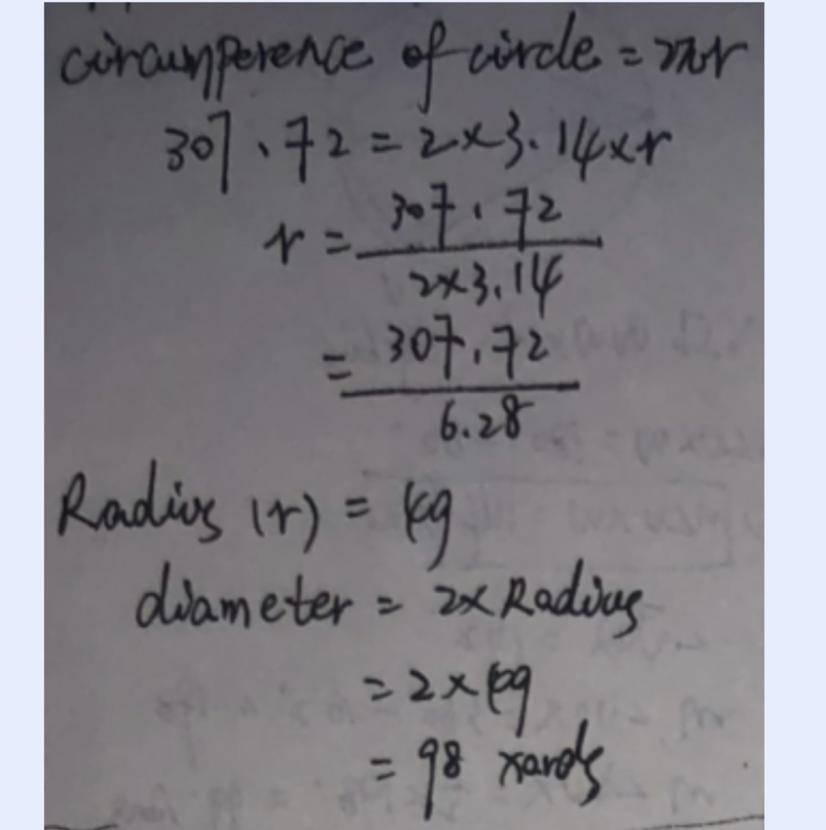 circumference of circle = 2πr
307.72 = 2×3.14×r
r = 307.72
2×3.14
= 307.72
6.28
Radius (r) = 49
diameter = 2× Radius
= 2×49
= 98 yards